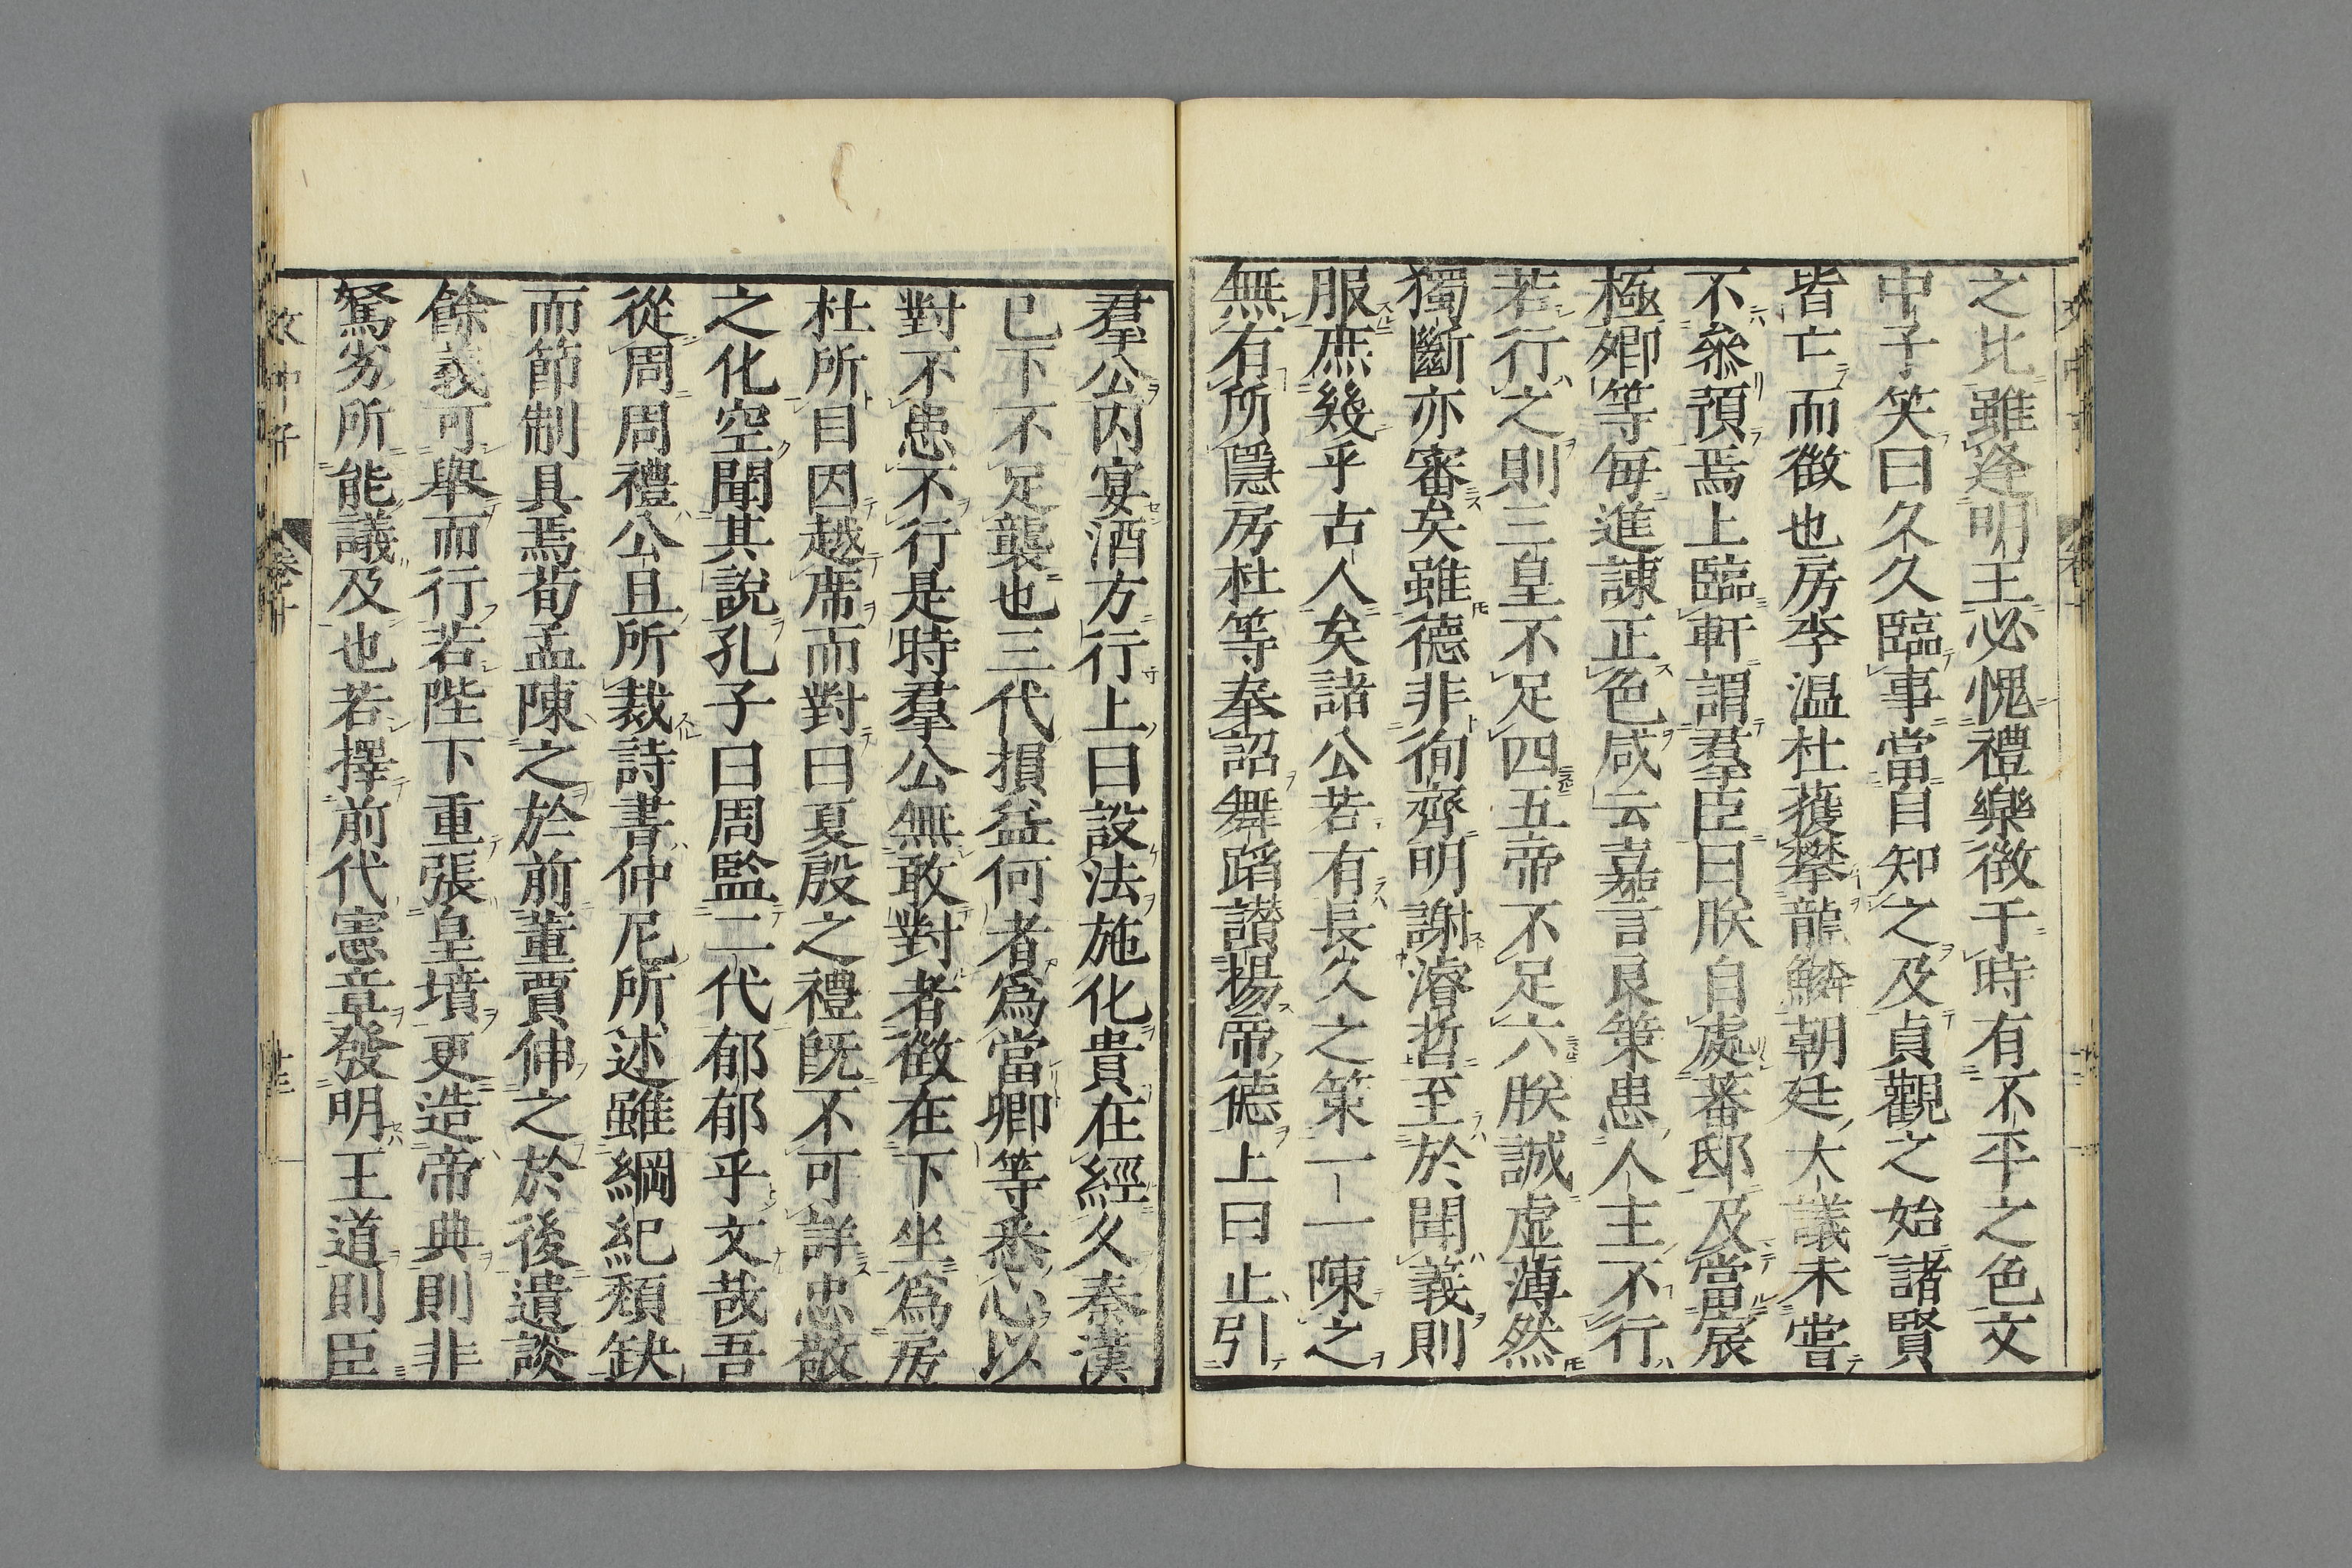 之比雖逢明王必愧禮樂徴于時有不平之色文
中子笑曰久久臨事當自知之及貞觀之始諸賢
皆亡而徴也房李温杜獲攀龍鱗朝廷大議未嘗
不叅預焉上臨軒謂羣臣曰朕自處蕃邸及當扆
極卿等毎進諫正色咸云嘉言良策患人主不行
若行之則三皇不足四五帝不足六朕誠虚薄然
獨斷亦審矣雖德非徇齊明謝濬哲至於聞義則
服庶幾乎古人矣諸公若有長久之策一一陳之
無有所隱房杜等奉詔舞蹈讃揚帝德上曰止引
羣公内宴酒方行上曰設法施化貴在經久秦漢
已下不足襲也三代損益何者爲當卿等悉心以
對不患不行是時羣公無敢對者徴在下坐爲房
杜所目因越席而對曰夏殷之禮既不可詳忠敬
之化空聞其說孔子曰周監二代郁郁乎文哉吾
從周周禮公旦所裁詩書仲尼所述雖綱紀頽缺
而節制具焉荀孟陳之於前董賈伸之於後遺談
餘義可舉而行若陛下重張皇墳更造帝典則非
駑劣所能議及也若擇前代憲章發明王道則臣
卷十